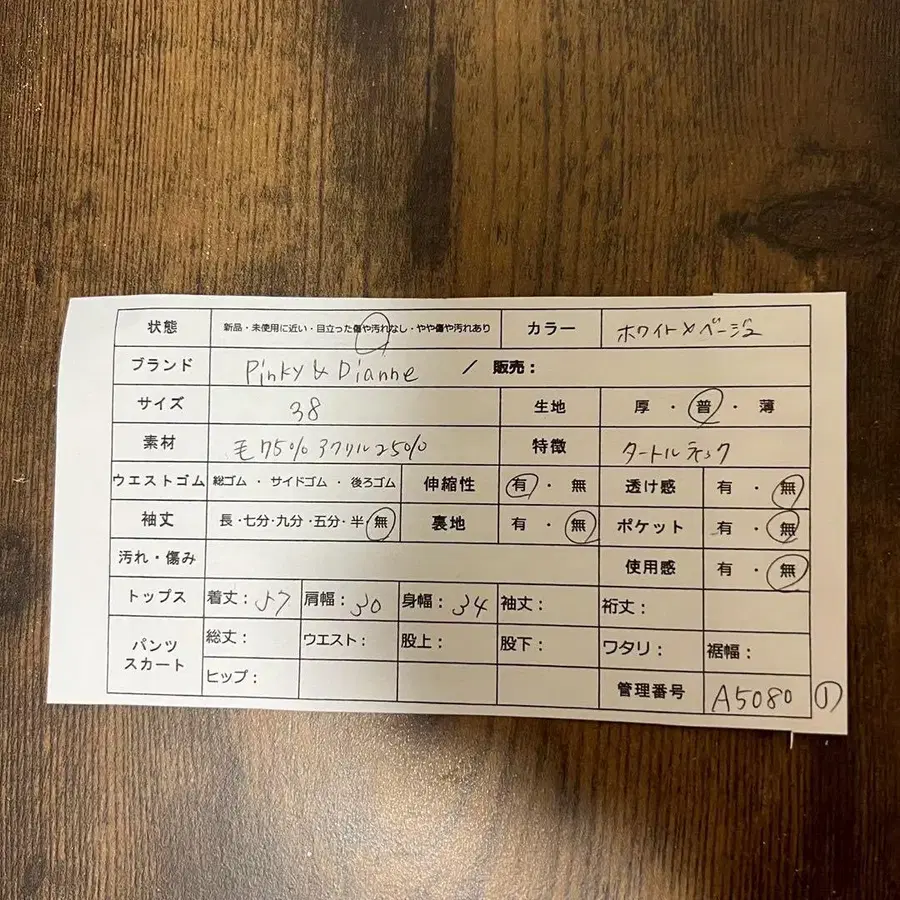 状態 新品・未使用に近い・目立った傷や汚れなし・やや傷や汚れあり カラー ホワイト×ベージュ
ブランド Pinky & Dianne / 販売:
サイズ 38 生地 厚・普・薄
素材 毛75% アクリル25% 特徴 タートルネック
ウエストゴム 総ゴム・サイドゴム・後ろゴム 伸縮性 有・無 透け感 有・無
袖丈 長・七分・九分・五分・半・無 裏地 有・無 ポケット 有・無
汚れ・傷み 使用感 有・無
トップス 着丈:57 肩幅:30 身幅:34 袖丈: 裄丈:
パンツ スカート 総丈: ウエスト: 股上: 股下: ワタリ: 裾幅:
ヒップ: 管理番号 A5080 ①